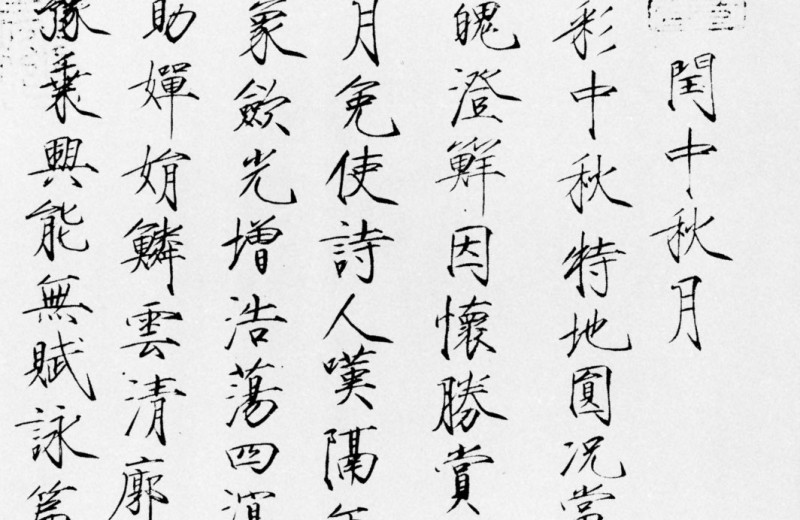 閏中秋月
彩中秋特地圓況當
魄澄鮮因懷勝賞
月免使詩人嘆隔
象歛光增浩蕩四溟
助嬋娟鱗雲清廓
豫乘興能無賦詠篇